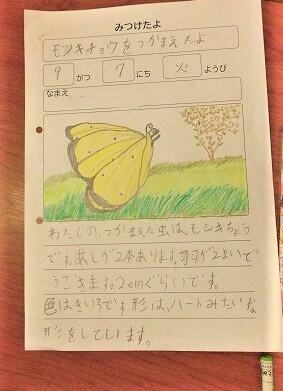 みつけたよ
モンキチョウをつかまえたよ
9 がつ 7 にち 火 ようび
なまえ
わたしの、つかまえた虫は、モンキちょう
です。あしが2本あります。羽が2まいで
うごきます。2cmぐらいです。
色はきいろです形は、ハートみたいな
形をしています。